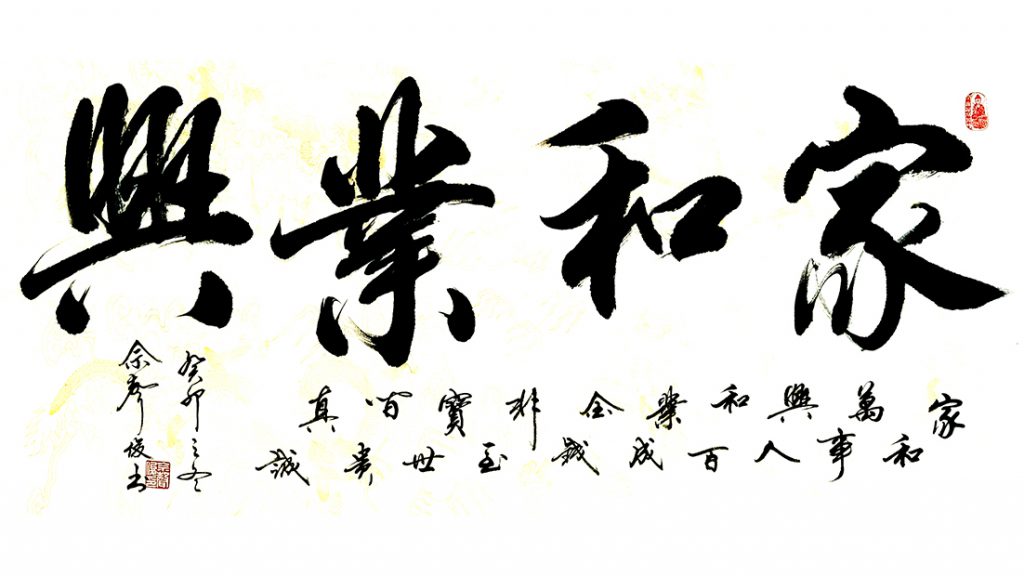 家和業興
家和萬事興人和百業成金錢非至寶世間貴真誠
癸卯之冬
佘彥俊书